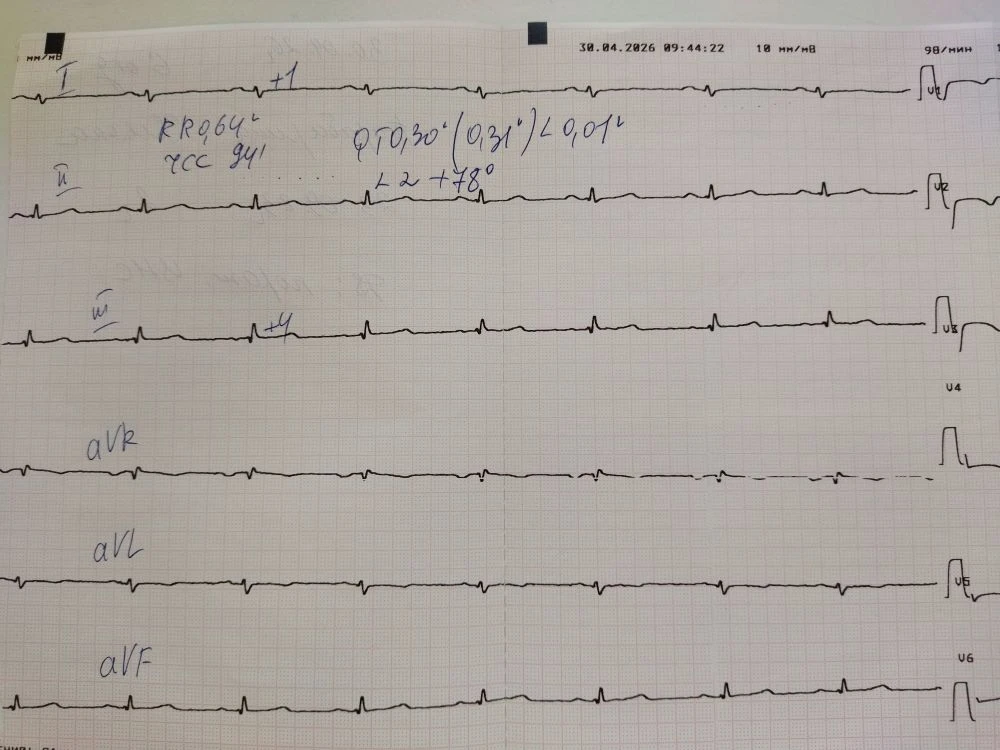 мм/мВ 30.04.2026 09:44:22 10 мм/мВ 98/мин
I +1 V1
RR0,64" QT0,30"(0,31")∠0,01"
ЧСС 94' ∠2 +78°
II V2
III +4 V3
V4
aVR
aVL V5
aVF V6